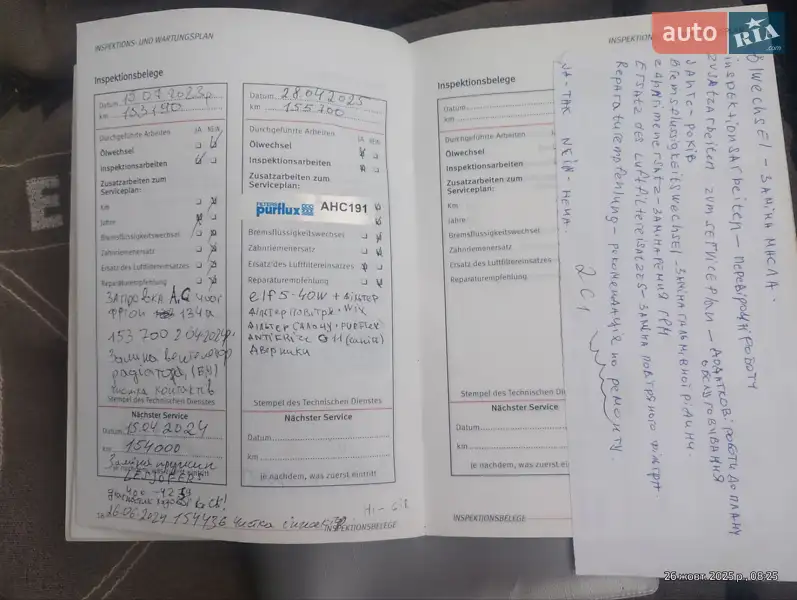 INSPEKTIONS- UND WARTUNGSPLAN
Inspektionsbelege
Datum 15.07.2023р
km 153190
Durchgeführte Arbeiten JA NEIN
Ölwechsel
Inspektionsarbeiten
Zusatzarbeiten zum
Serviceplan:
Km
Jahre
Bremsflüssigkeitswechsel
Zahnriemenersatz
Ersatz des Luftfiltereinsatzes
Reparaturempfehlung
Заправка A.C
фріон 134а
153 700 2.04.2024р.
Заміна вентилятор
радіатора, (БН)
чистка контактів
Stempel des Technischen Dienstes
Nächster Service
Datum 15.04.2024
km 154000
Заміна пружин
LESJOFERS
26.06.2024 154436 чистка
Datum 28.04.2025
km 155700
Durchgeführte Arbeiten JA NEIN
Ölwechsel
Inspektionsarbeiten
Zusatzarbeiten zum
Serviceplan:
FILTERS
purflux AHC191
Bremsflüssigkeitswechsel
Zahnriemenersatz
Ersatz des Luftfiltereinsatzes
Reparaturempfehlung
elf 5-40W + фільтер
фільтер повітря · WIX
фільтер салону · PURFLUX
ANTIFRIZE G11 (синій)
Дверники
Stempel des Technischen Dienstes
Nächster Service
Datum
km
Je nachdem, was zuerst eintritt
INSPEKTIONSBELEGE
INSPEKTION
Inspektionsbelege
Datum
km
Durchgeführte Arbeiten JA N
Ölwechsel
Inspektionsarbeiten
Zusatzarbeiten zum
Serviceplan:
Km
Jahre
Bremsflüssigkeitswechsel
Zahnriemenersatz
Ersatz des Luftfiltereinsatzes
Reparaturempfehlung
Stempel des Technischen Di
Nächster Service
Datum
km
Je nachdem, was zuerst ein
INSPEKTIONSBELEGE
Ölwechsel – заміна масла.
Inspektionsarbeiten – перевірочні роботи
Zusatzarbeiten zum Serviceplan – додаткові роботи до плану
обслуговування
Jahre – років
Bremsflüssigkeitswechsel – заміна гальмівної рідини.
Zahnriemenersatz – заміна ременя ГРМ
Ersatz des Luftfiltereinsatzes – заміна повітряного фільтра
Reparaturempfehlung – рекомендація по ремонту.
JA - ТАК NEIN - НЕМА.
auto RIA .com
26 жовт. 2025 р., 08:25